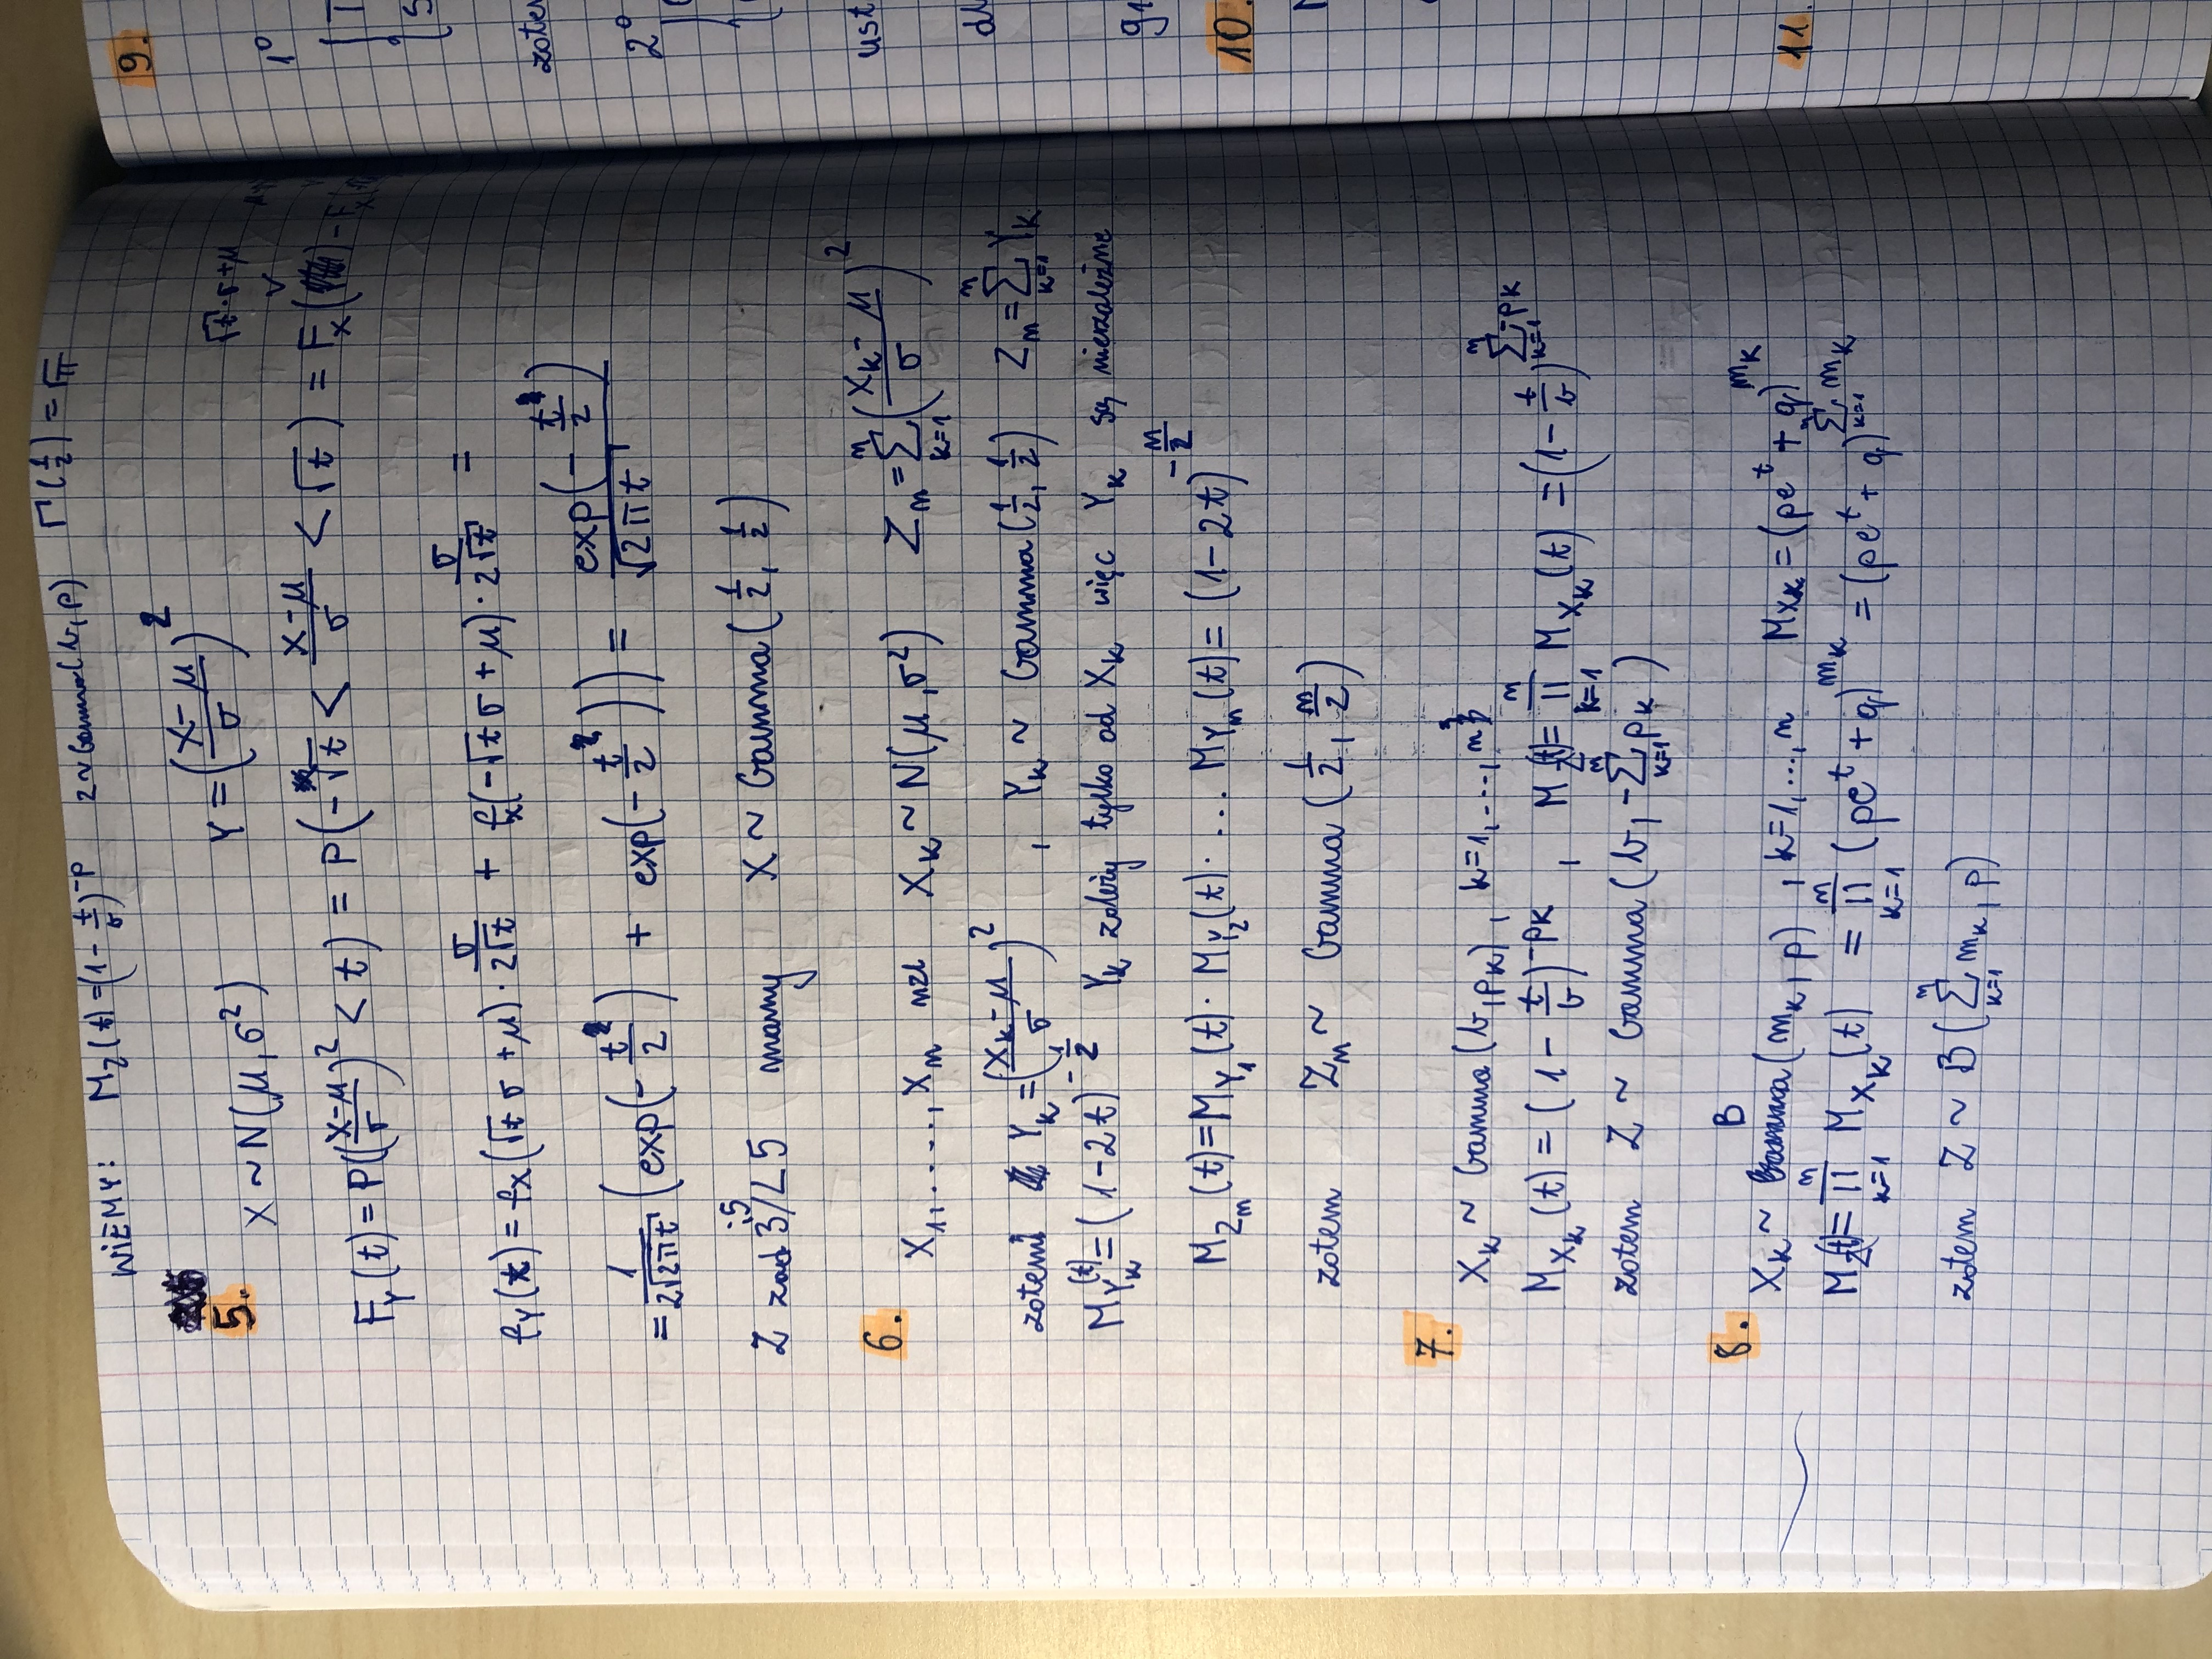 WIEMY: M_Z(t) = (1 - t/σ)^{-p} Z ~ Gamma(b, p) Γ(1/2) = √π
5.
X ~ N(μ, σ²) Y = ((X-μ)/σ)²
√t·σ+μ
F_Y(t) = P(((X-μ)/σ)² < t) = P(-√t < (X-μ)/σ < √t) = F_X( ) - F_X(
f_Y(t) = f_X(√t σ + μ) · σ/(2√t) + f_X(-√t σ + μ) · σ/(2√t) =
= 1/(2√(2πt)) (exp(-t/2) + exp(-t/2)) = exp(-t/2)/√(2πt)
Z zad 3/L5 mamy X ~ Gamma(1/2, 1/2)
6.
X₁, ....., Xₙ nzl X_k ~ N(μ, σ²) Z_n = Σ_{k=1}^{n} ((X_k - μ)/σ)²
zatem Y_k = ((X_k - μ)/σ)², Y_k ~ Gamma(1/2, 1/2) Z_n = Σ_{k=1}^{n} Y_k
M_{Y_k}(t) = (1-2t)^{-1/2} Y_k zależy tylko od X_k więc Y_k są niezależne
M_{Z_n}(t) = M_{Y_1}(t) · M_{Y_2}(t) · ... M_{Y_n}(t) = (1-2t)^{-n/2}
zatem Z_n ~ Gamma(1/2, n/2)
7.
X_k ~ Gamma(b, p_k), k=1,...,n
M_{X_k}(t) = (1 - t/b)^{-p_k}, M_Z(t) = Π_{k=1}^{n} M_{X_k}(t) = (1 - t/b)^{Σ_{k=1}^{n} -p_k}
zatem Z ~ Gamma(b, -Σ_{k=1}^{n} p_k)
8.
X_k ~ B(m_k, p), k=1,...,n M_{X_k} = (pe^t + q)^{m_k}
M_Z(t) = Π_{k=1}^{n} M_{X_k}(t) = Π_{k=1}^{n} (pe^t + q)^{m_k} = (pe^t + q)^{Σ_{k=1}^{n} m_k}
zatem Z ~ B(Σ_{k=1}^{n} m_k, p)
9.
1°
2°
10.
11.